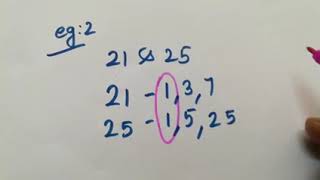 eg:2
21 & 25
21 - 1, 3, 7
25 - 1, 5, 25